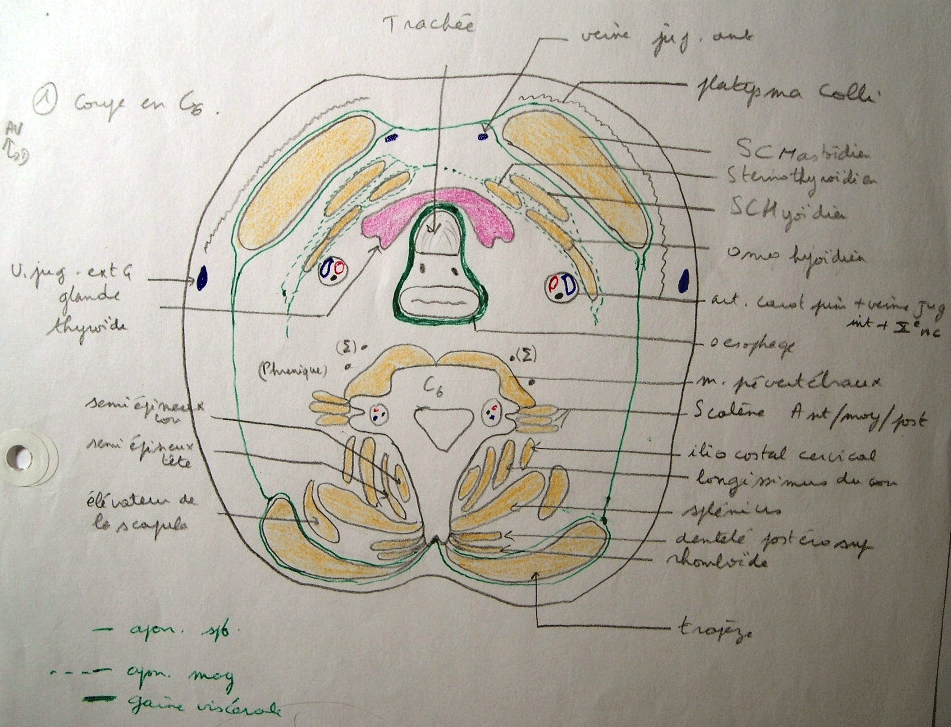 Trachée
veine jug. ant
platysma Colli
① Coupe en C6.
AV
SCMastoïdien
Sternothyroïdien
SCHyoïdien
omo hyoïdien
V. jug. ext G
glande
thyroïde
art. carot prim + veine jug
int + Xe nc
oesophage
(Σ)
(Σ)
(Phrenique)
C6
m. prévertébraux
Scalène Ant/moy/post
semi épineux
cou
semi épineux
tête
ilio costal cervical
longissimus du cou
élévateur de
la scapula
splénius
dentelé postéro sup
rhomboïde
trapèze
apon. sf.
apon. moy
gaine viscérale